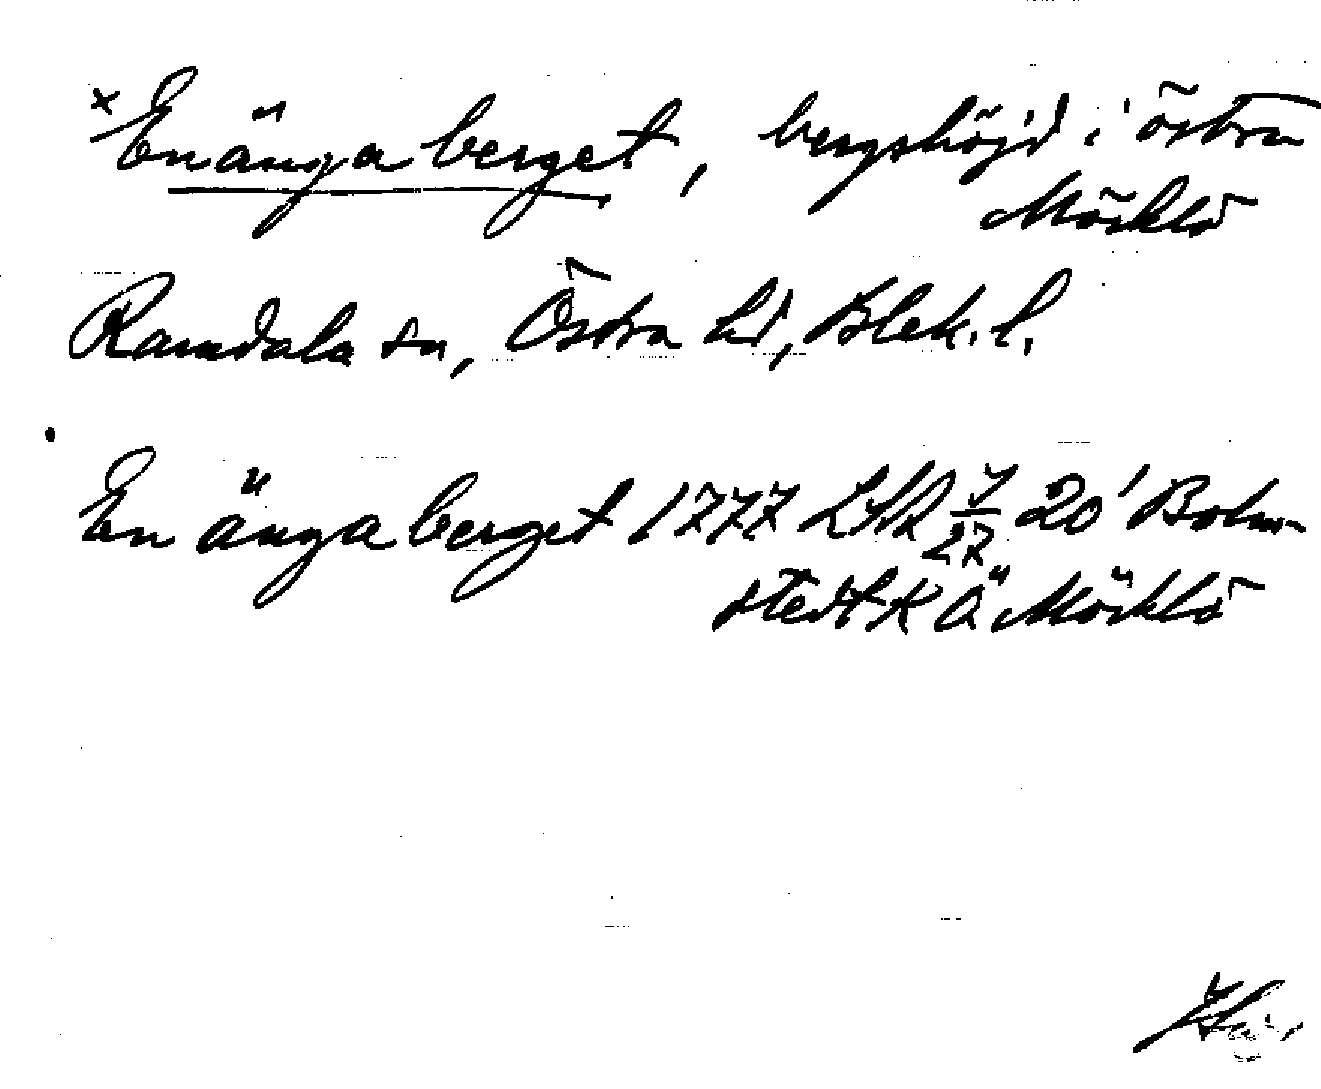 × Enängaberget, bergshöjd i östra
Möcklö
Ramdala sn, Östra hd, Blek. l.
En änga berget 1777 LSA 7/27 20' Bolm-
stedt K Ä Möcklö